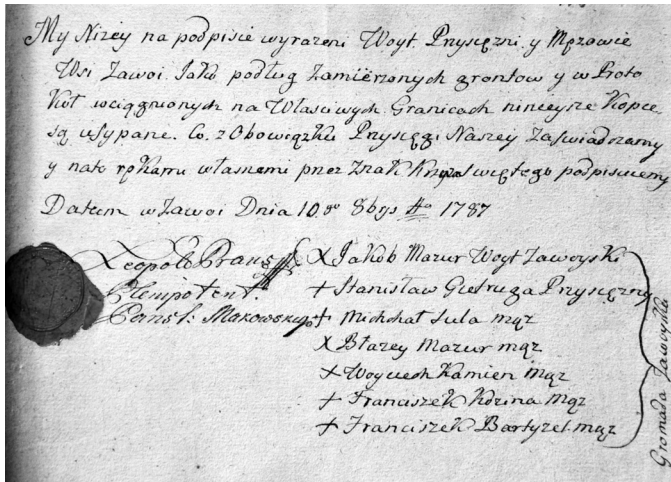 My Niżey na podpisie wyrażeni Woyt. Przysięzni y Mężowie
Wsi Zawoi. Jako podług Zamierzonych grontow y w Proto
Kół wciągnionych na Właściwych Granicach ninieysze Kopce
są usypane. Co z Obowiązku Przysięgi Naszey Zaświadczamy
y nato rękami własnemi przez Znak Krzyża Swiętego podpisuiemy
Datum w Zawoi Dnia 10. 8bris 1787
Leopold
Plempotent:
Państ: Makowskiego
X Jakób Mazur Woyt Zawoyski
+ Stanisław Gietruga Przysiężny
+ Michał Sula mąż
X Błażey Mazur mąż
+ Woyciech Kamien mąż
+ Franciszek Kozina mąż
+ Franciszek Bartyzel mąż
Gromada Zawoyska